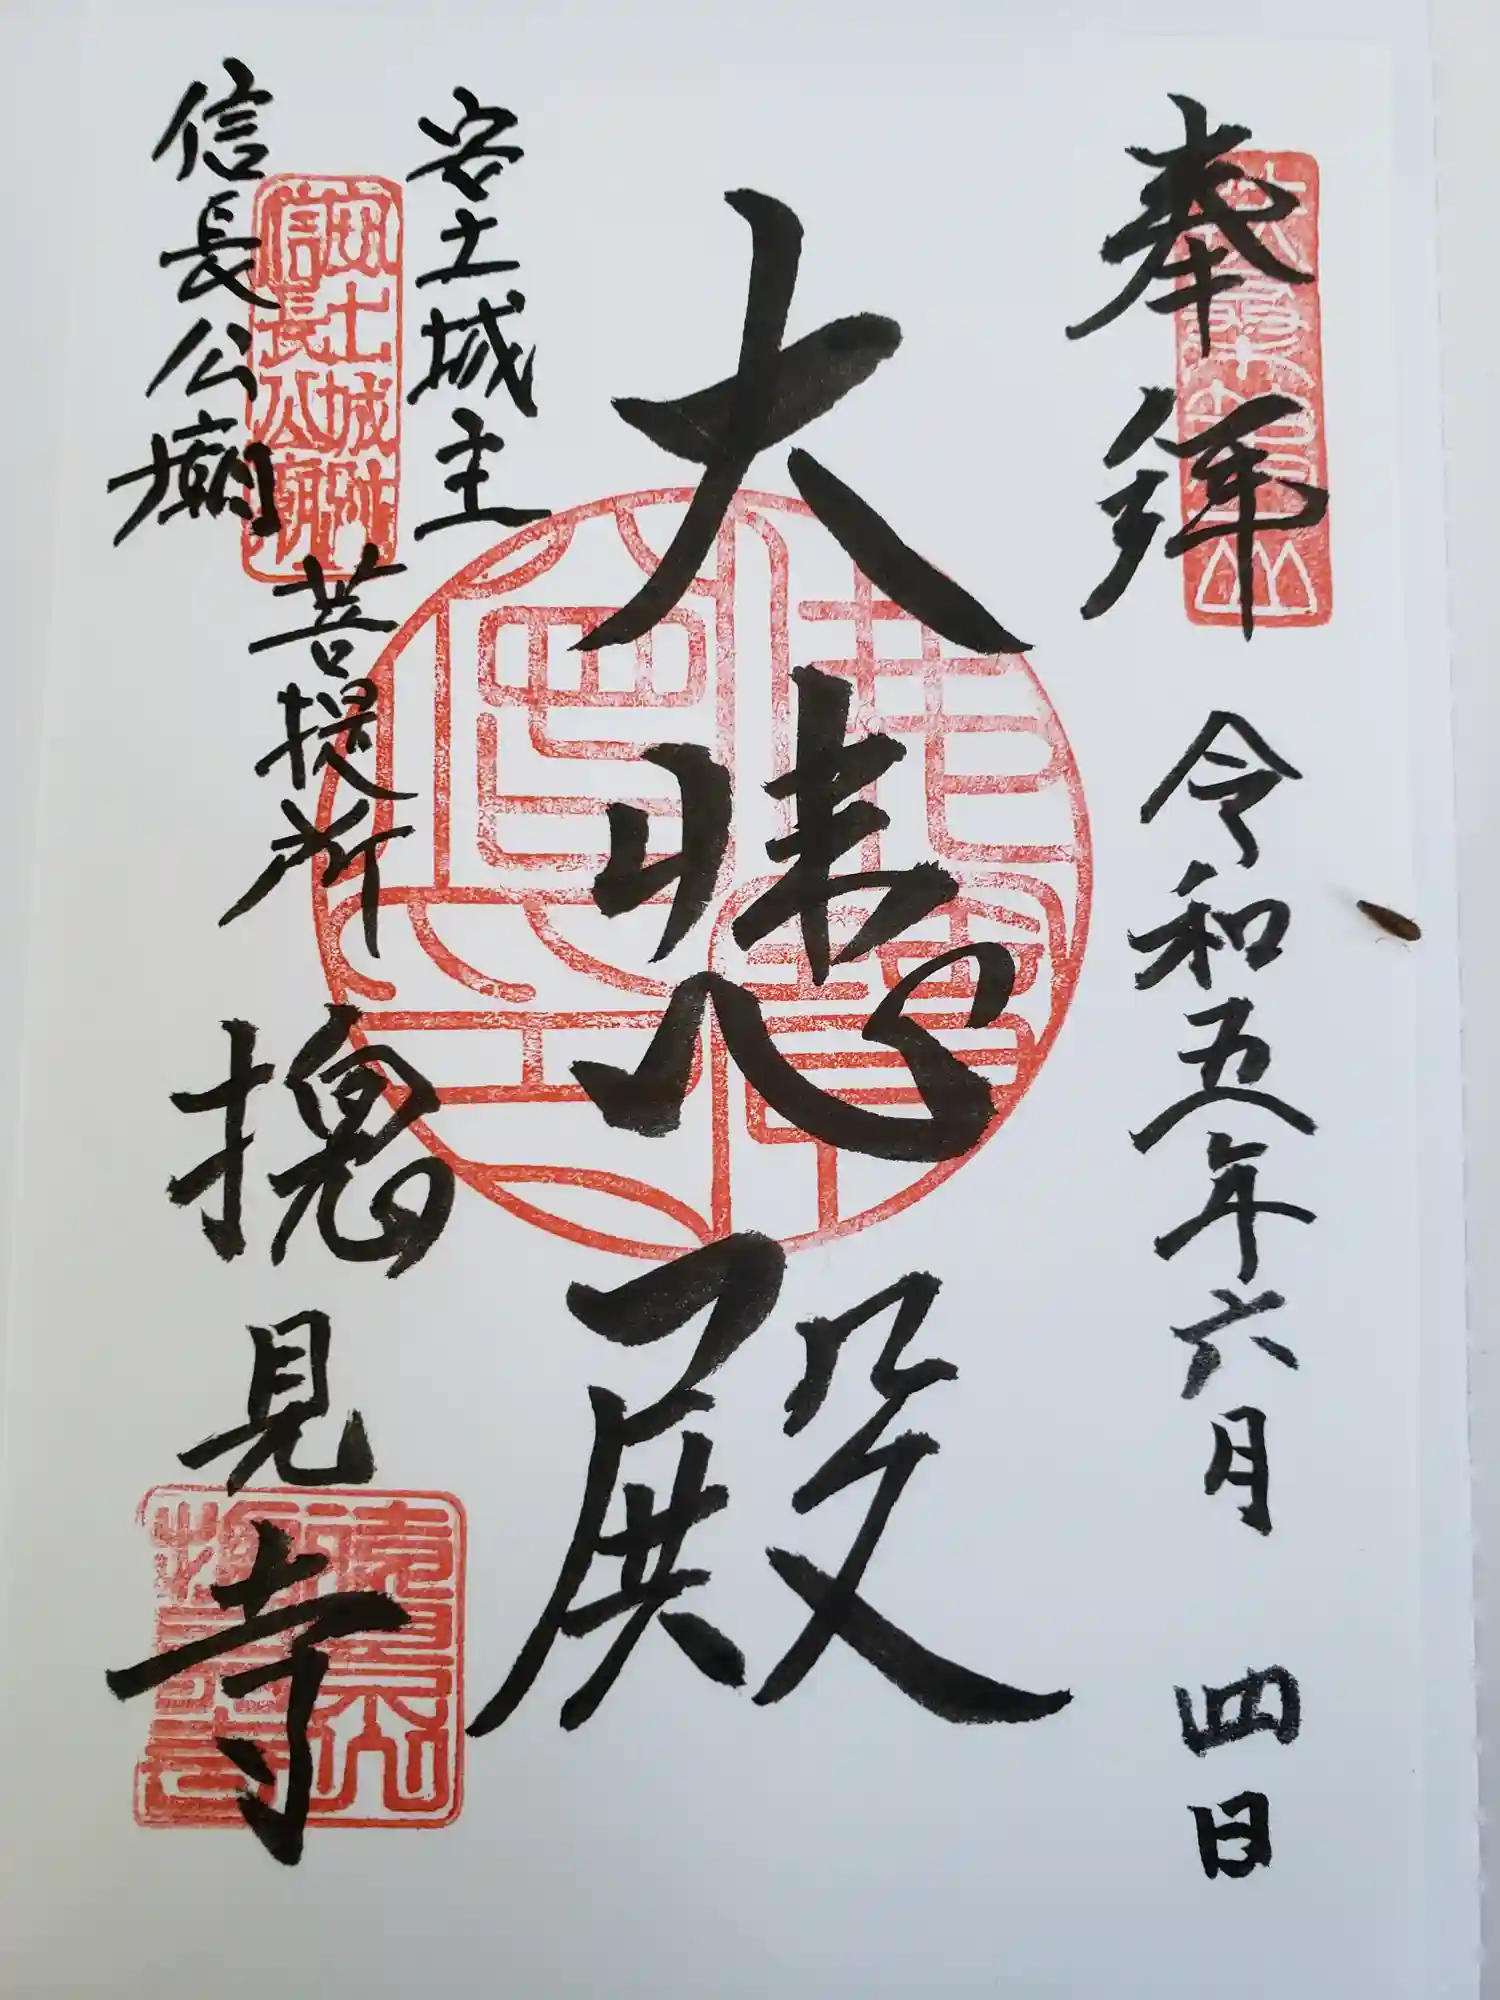 奉拝
令和五年六月四日
大悲殿
安土城主
信長公廟
菩提所
摠見寺
安土城跡
信長公廟